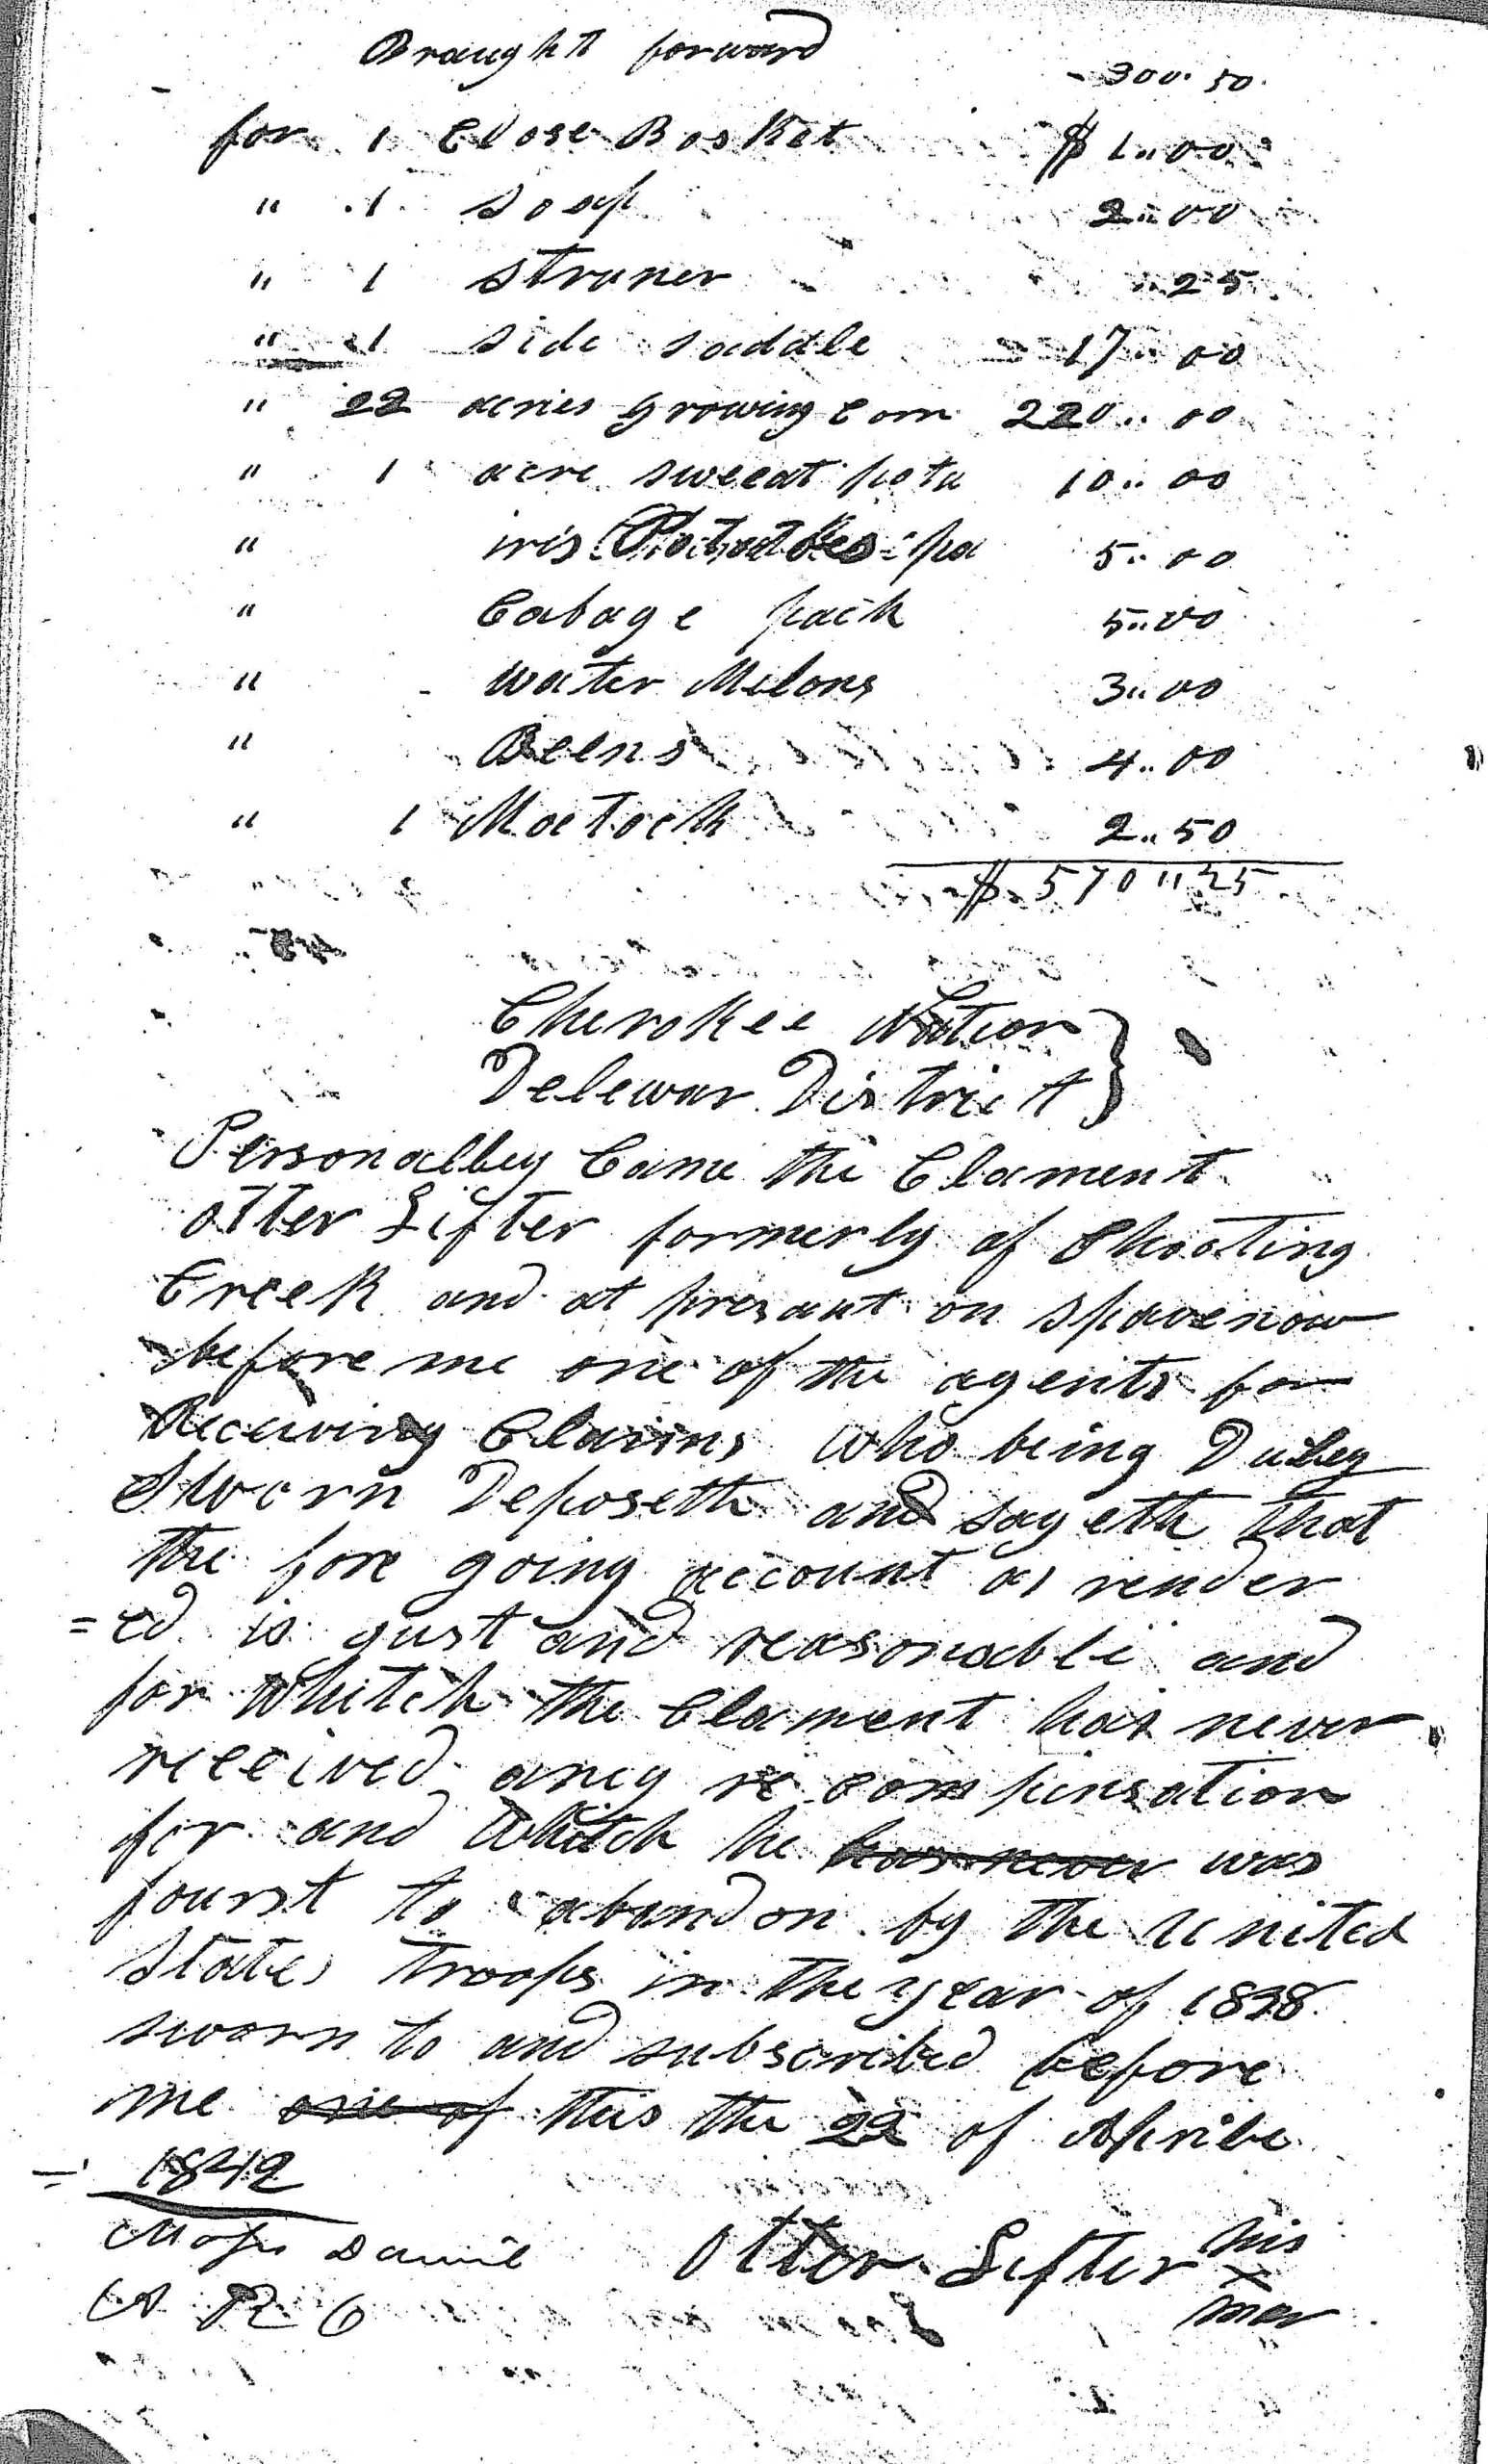 Braught forward 300.50
for 1 Close Basket $1..00
" 1 Soap 2..00
" 1 straner 25
" 1 side saddle 17..00
" 22 acries growing Corn 220..00
" 1 acre sweeat pota 10..00
" iris Potatoes pa 5..00
" Cabage pach 5..00
" water Melons 3..00
" Beens 4..00
" 1 Matock 2..50
$570"25
Cherokee Nation }
Delewar District }
Personalley Came the Clament
Otter Lifter formerly of Shooting
Creek and at presant on spavenow
before me one of the agents for
Receiving Claims who being Duley
Sworn Deposeth and sayeth that
the fore going account as render
=ed is gust and reasonable and
for Whitch the Clament has never
received aney re compensation
for and Whitch he has never was
fourst to abandon by the United
States Troops in the year of 1838
sworn to and subscribed before
me one of this the 22 of Aprile
1842
Moses Daniel Otter Lifter his
x
mar